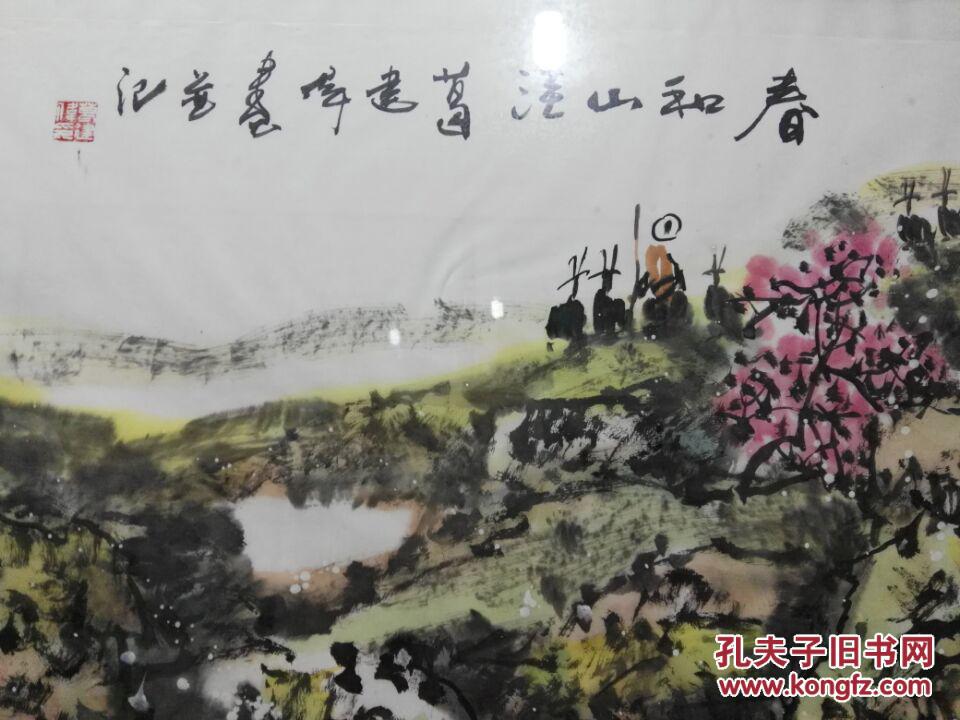 春和山洼 葛建伟画并记
孔夫子旧书网
www.kongfz.com